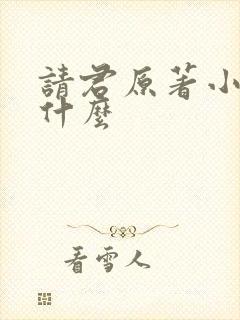 請君原著小
什麼
看雪人